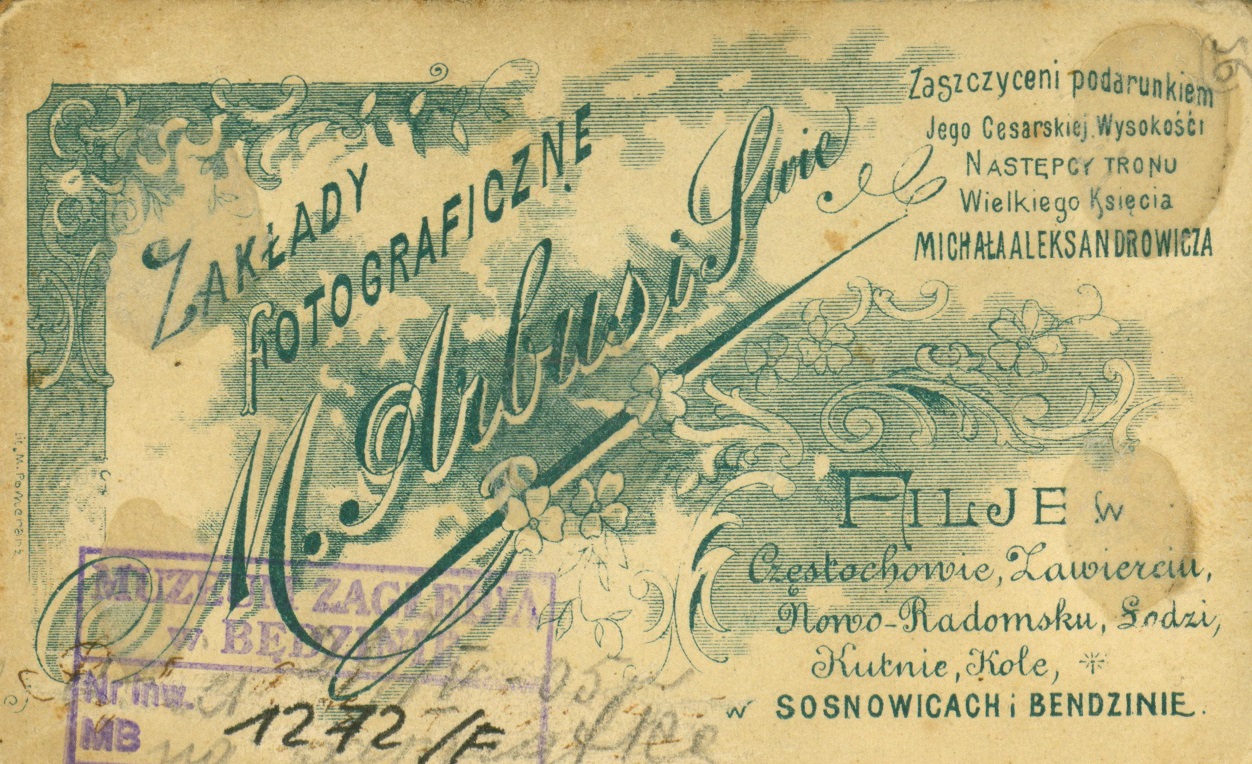 ZAKŁADY
FOTOGRAFICZNE
M. Arbus i S-wie
Zaszczyceni podarunkiem
Jego Cesarskiej Wysokości
NASTĘPCY TRONU
Wielkiego Księcia
MICHAŁA ALEKSANDROWICZA
FILJE w
Częstochowie, Zawierciu,
Nowo-Radomsku, Łodzi,
Kutnie, Kole,
w SOSNOWICACH i BENDZINIE.
MUZEUM ZAGŁĘBIA
w BĘDZINIE
Nr inw.
MB 1272/F